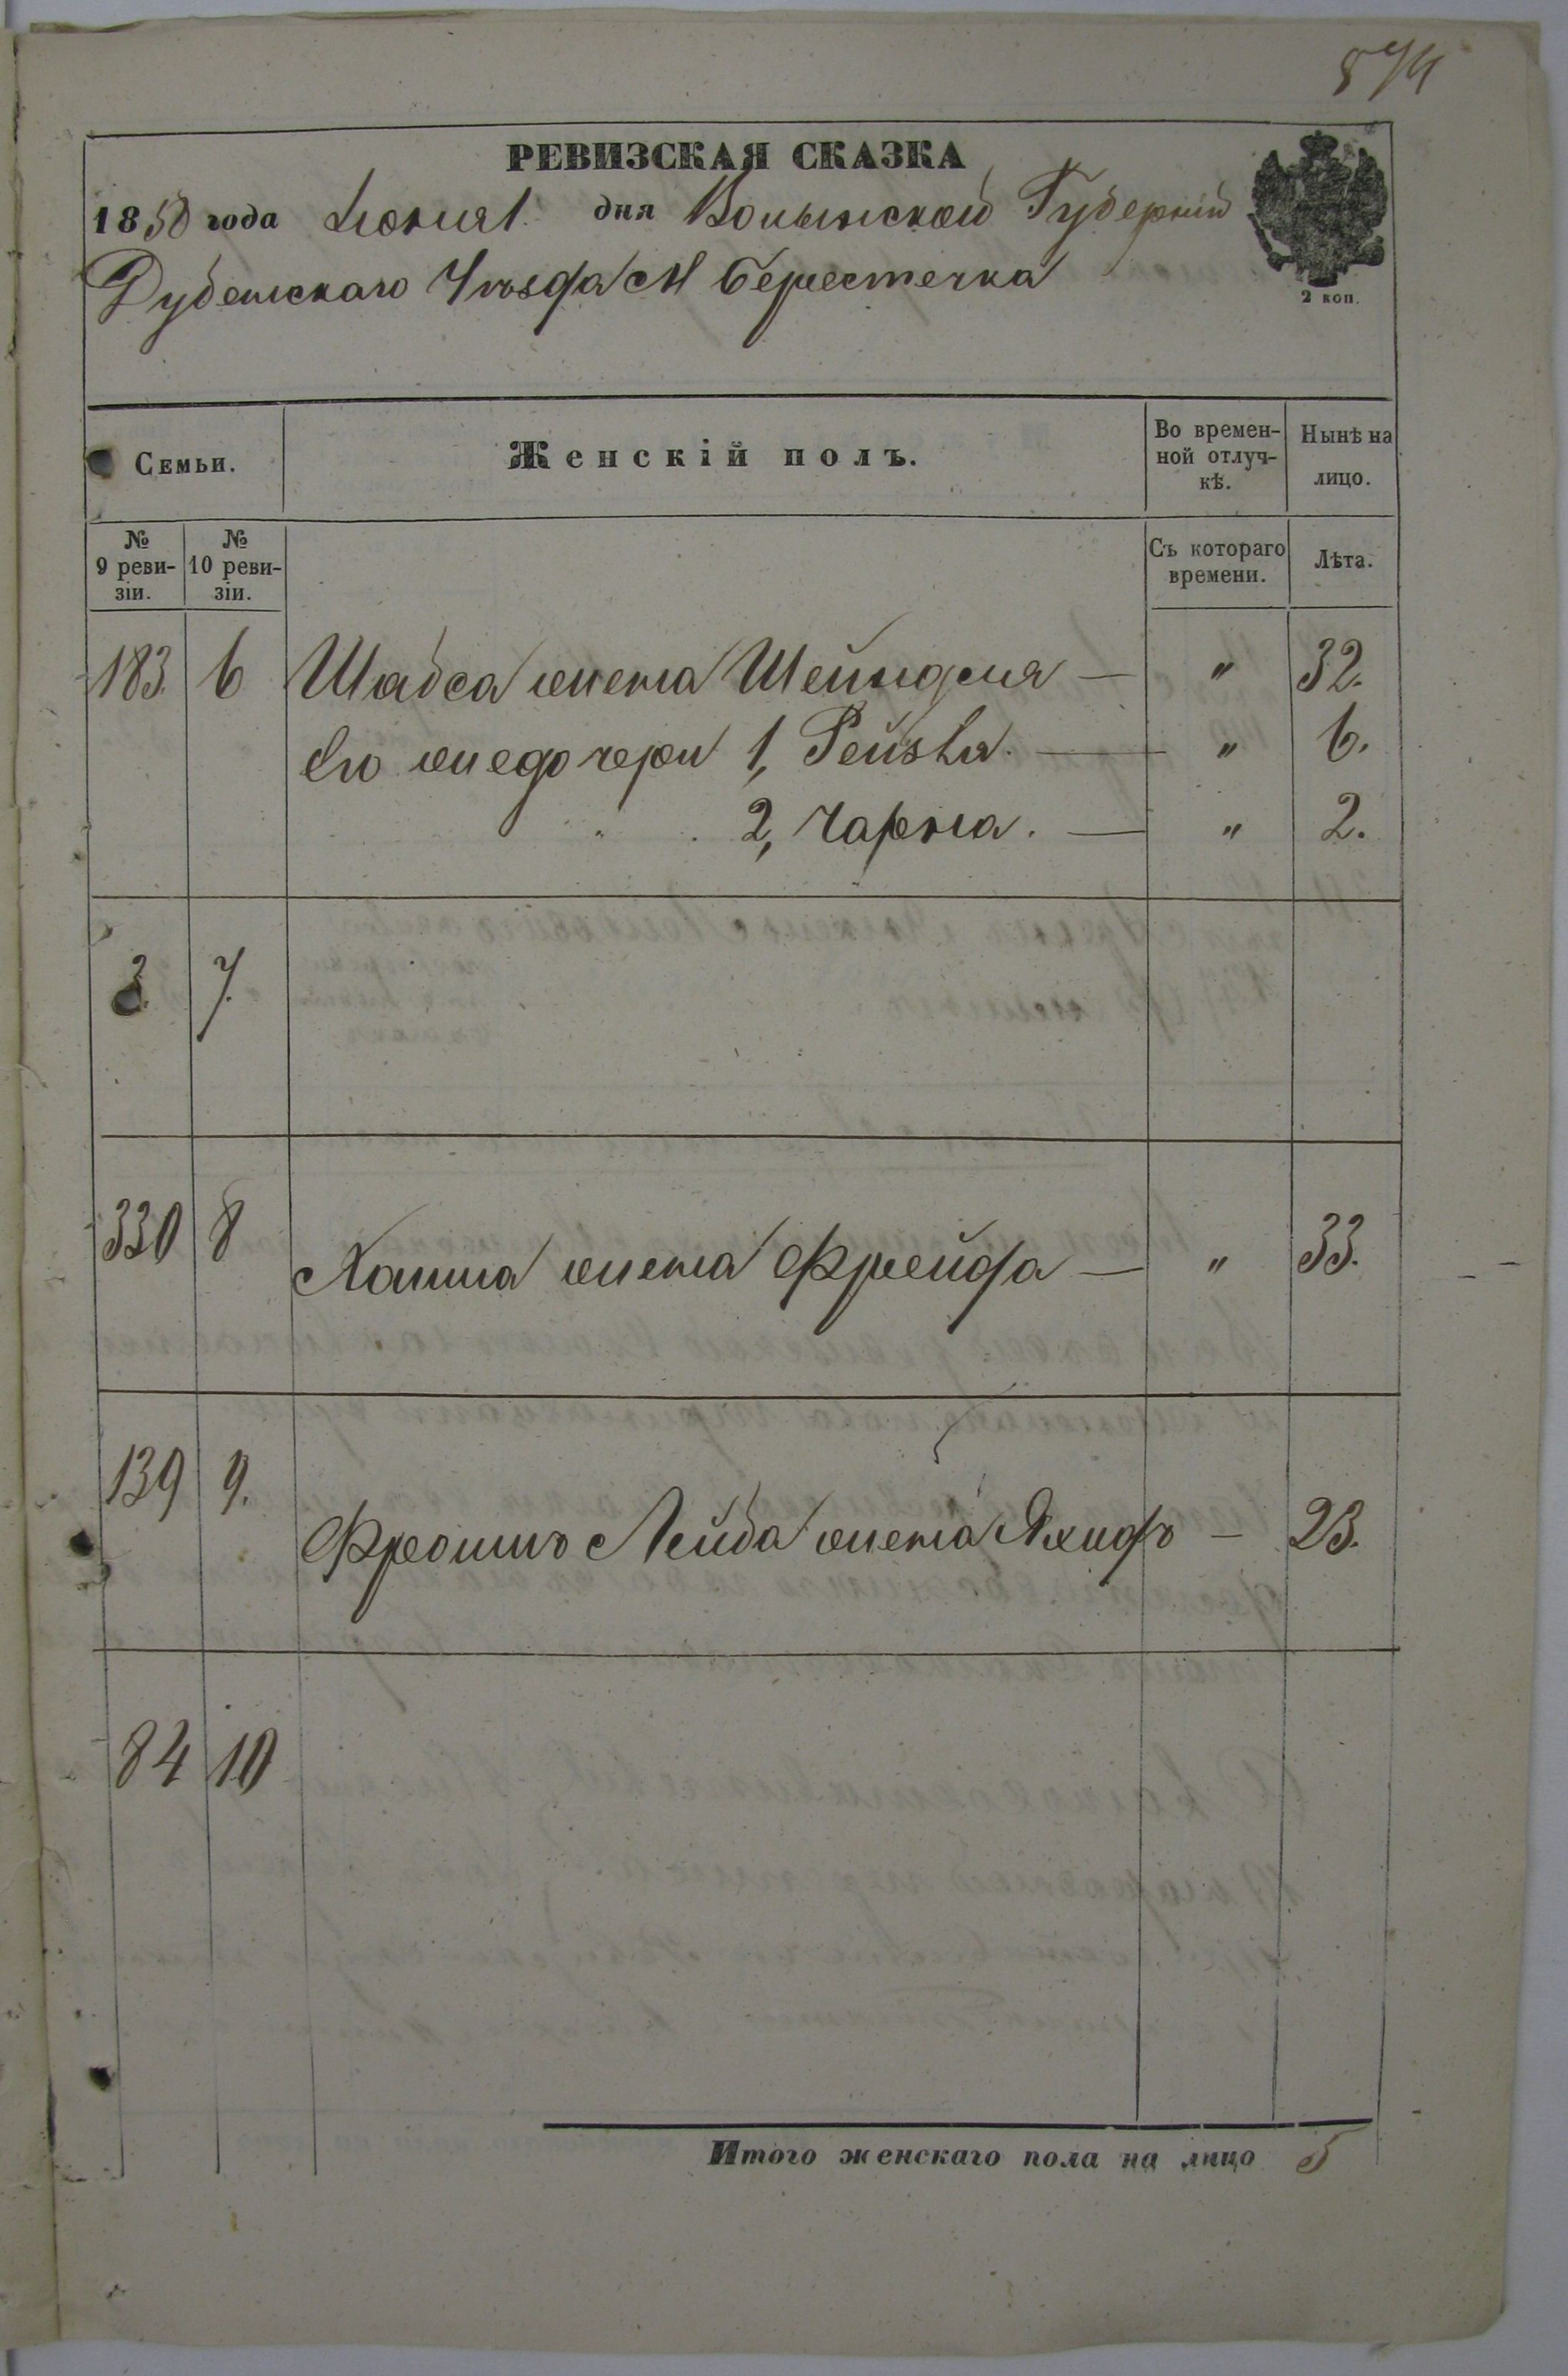 574
РЕВИЗСКАЯ СКАЗКА
1858 года Июня 1 дня Волынской Губерніи
Дубенскаго Уѣзда М Берестечка
2 коп.
Семьи. Женскій полъ. Во времен-ной отлуч-кѣ. Нынѣ на лицо.
№ 9 реви-зіи. № 10 реви-зіи. Съ котораго времени. Лѣта.
183. 6 Шабса жена Шейндля — „ 32.
Его же дочери 1, Рейзля. — „ 6.
„ 2, Чарна. — „ 2.
3. 7.
330 8 Хаима жена Фрейда — „ 33.
139 9. Фроимъ Лейба жена Яхидъ — 23.
84 10
Итого женскаго пола на лицо 5